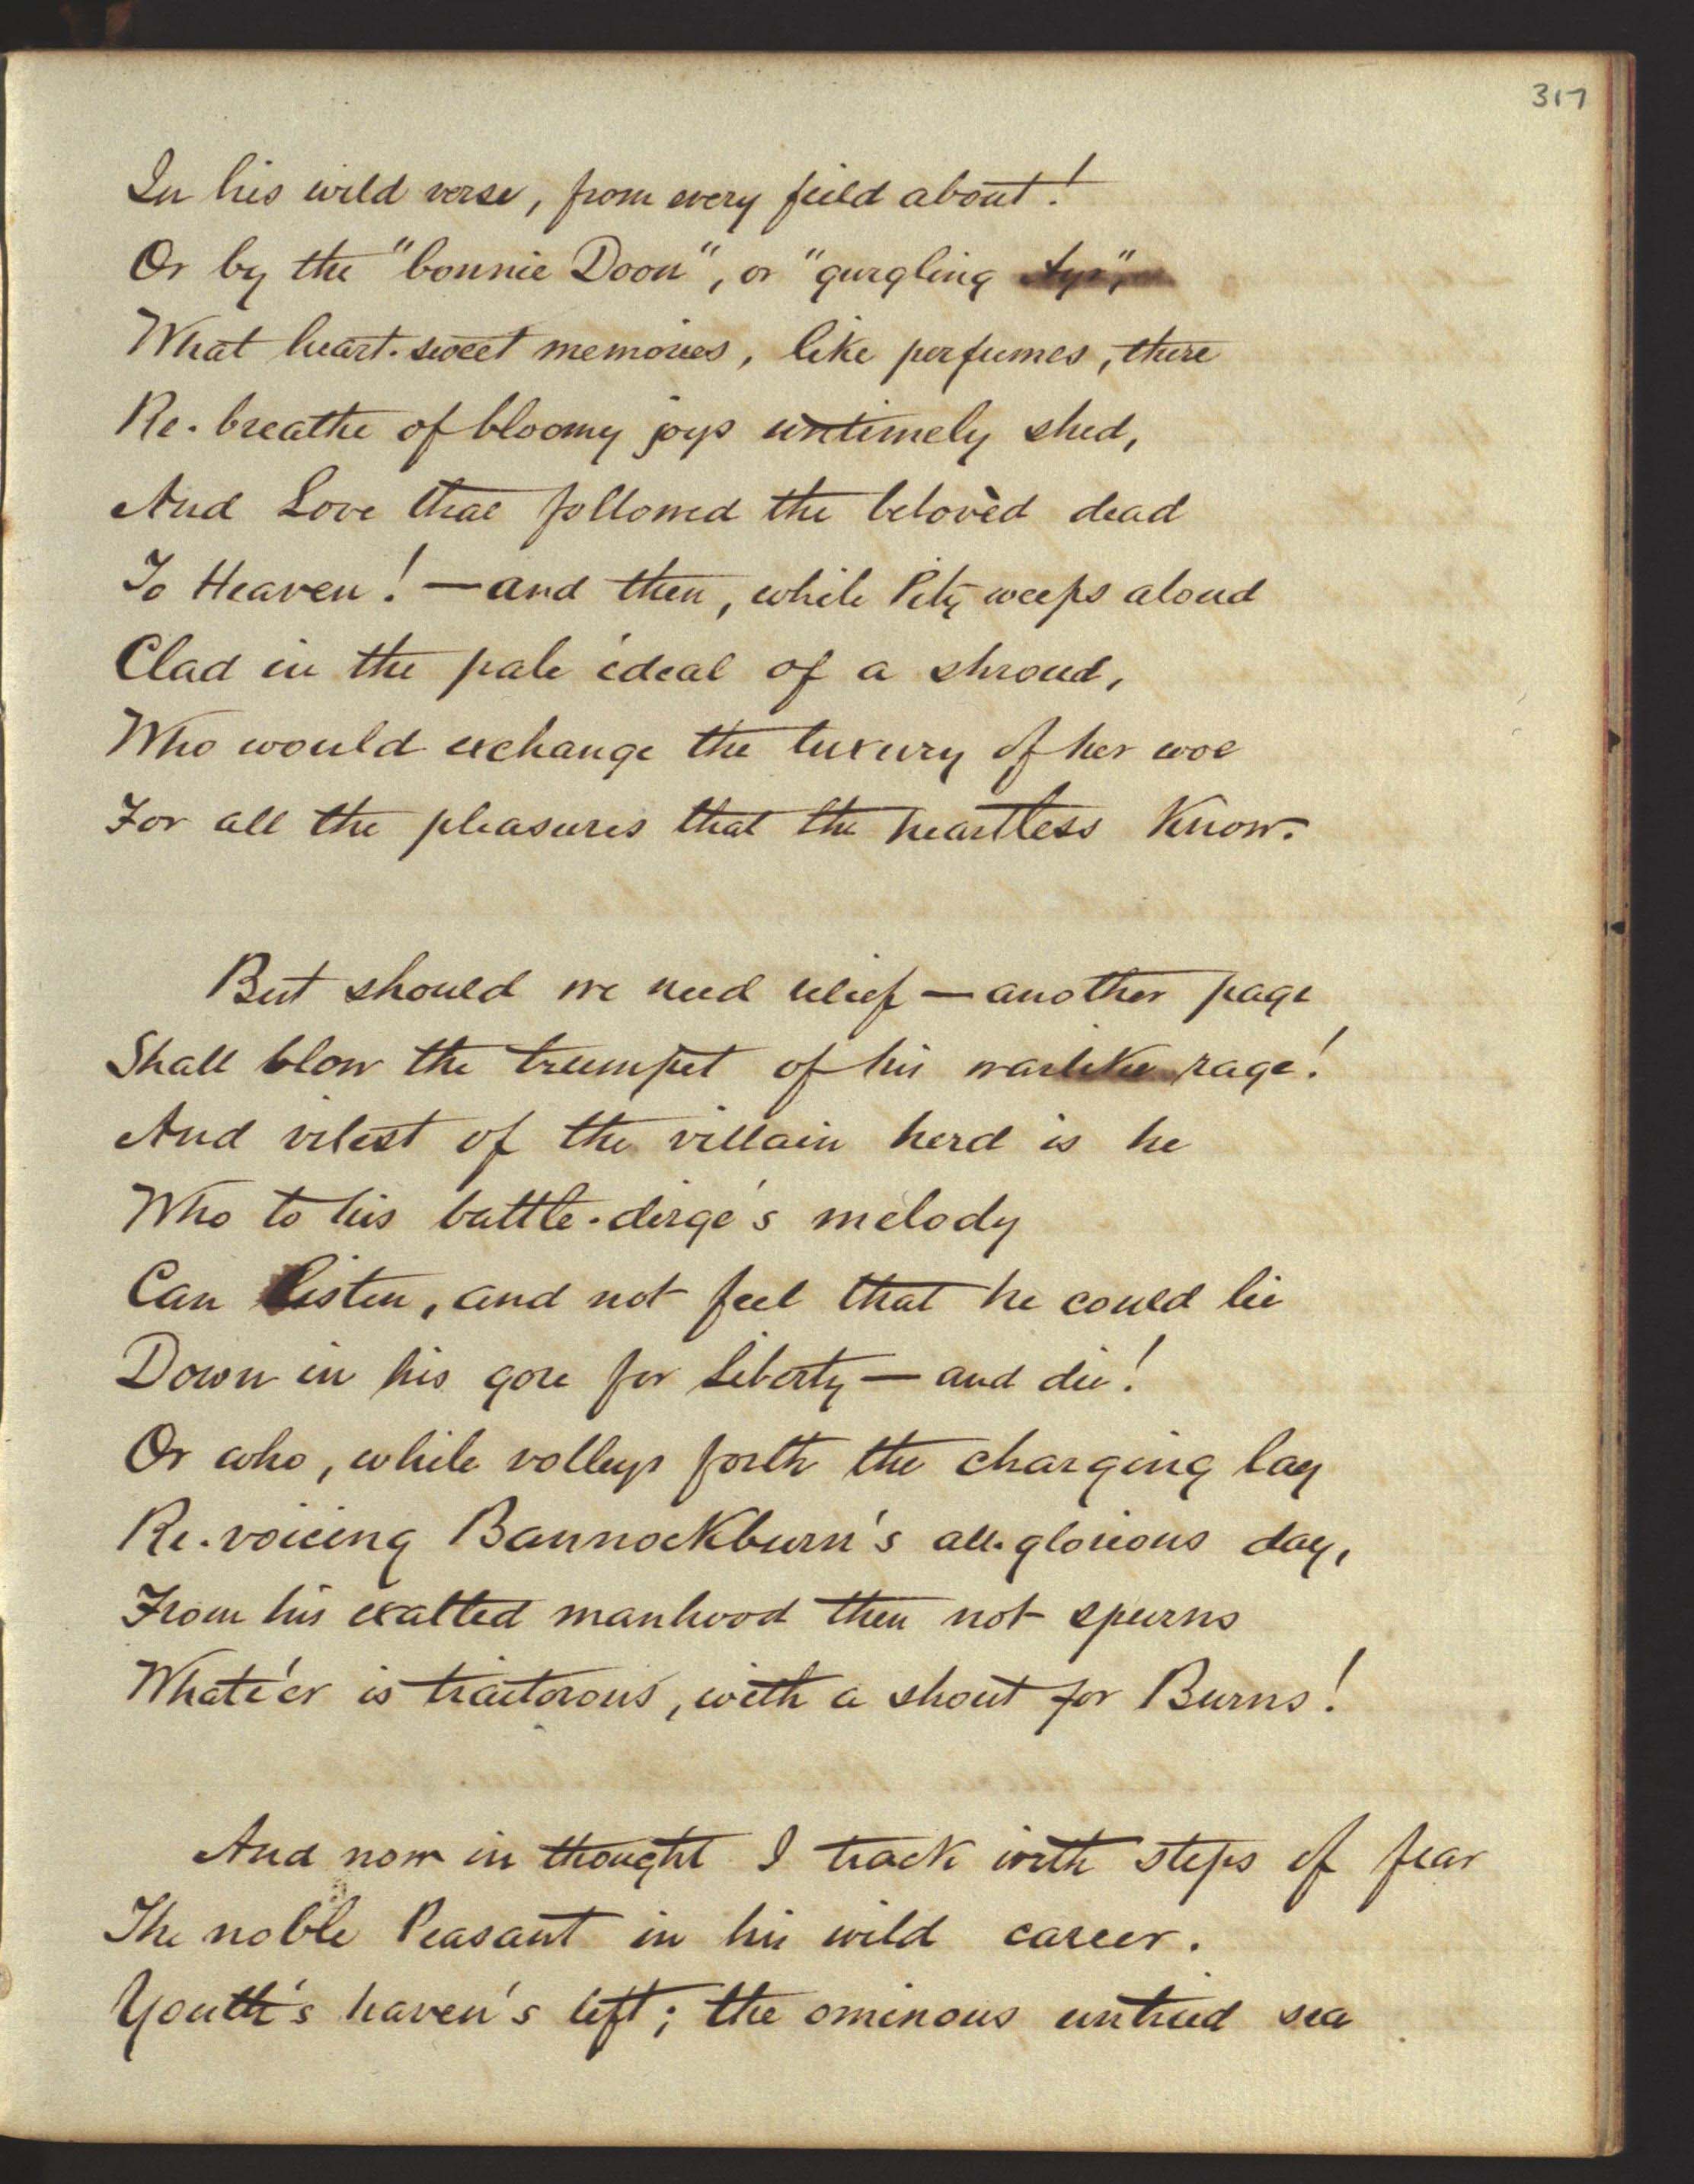 317
In his wild verse, from every field about!
Or by the "bonnie Doon", or "gurgling Ayr",
What heart-sweet memories, like perfumes, there
Re-breathe of bloomy joys untimely shed,
And Love that followed the belovèd dead
To Heaven! — and then, while Pity weeps aloud
Clad in the pale ideal of a shroud,
Who would exchange the luxury of her woe
For all the pleasures that the heartless know.
But should we need relief — another page
Shall blow the trumpet of his warlike rage!
And vilest of the villain herd is he
Who to his battle-dirge's melody
Can listen, and not feel that he could lie
Down in his gore for liberty — and die!
Or who, while volleys forth the charging lay
Re-voicing Bannockburn's all-glorious day,
From his exalted manhood then not spurns
Whate'er is traitorous, with a shout for Burns!
And now in thought I track with steps of fear
The noble Peasant in his wild career.
Youth's haven's left; the ominous untried sea